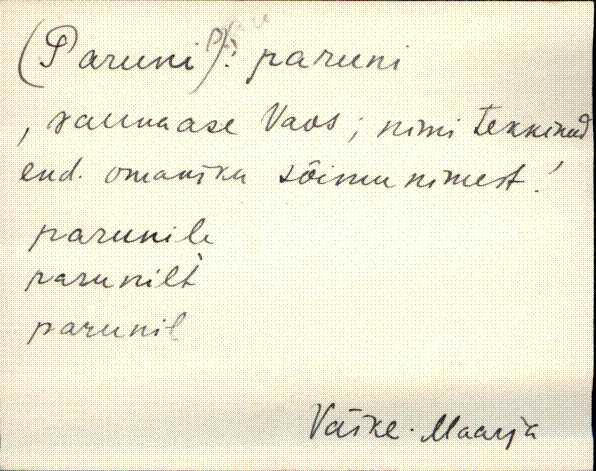 (Paruni): paruni
, saunaase Vaos; nimi tekkinud
end. omaniku sõimunimest!
parunile
parunilt
parunil
Väike-Maarja